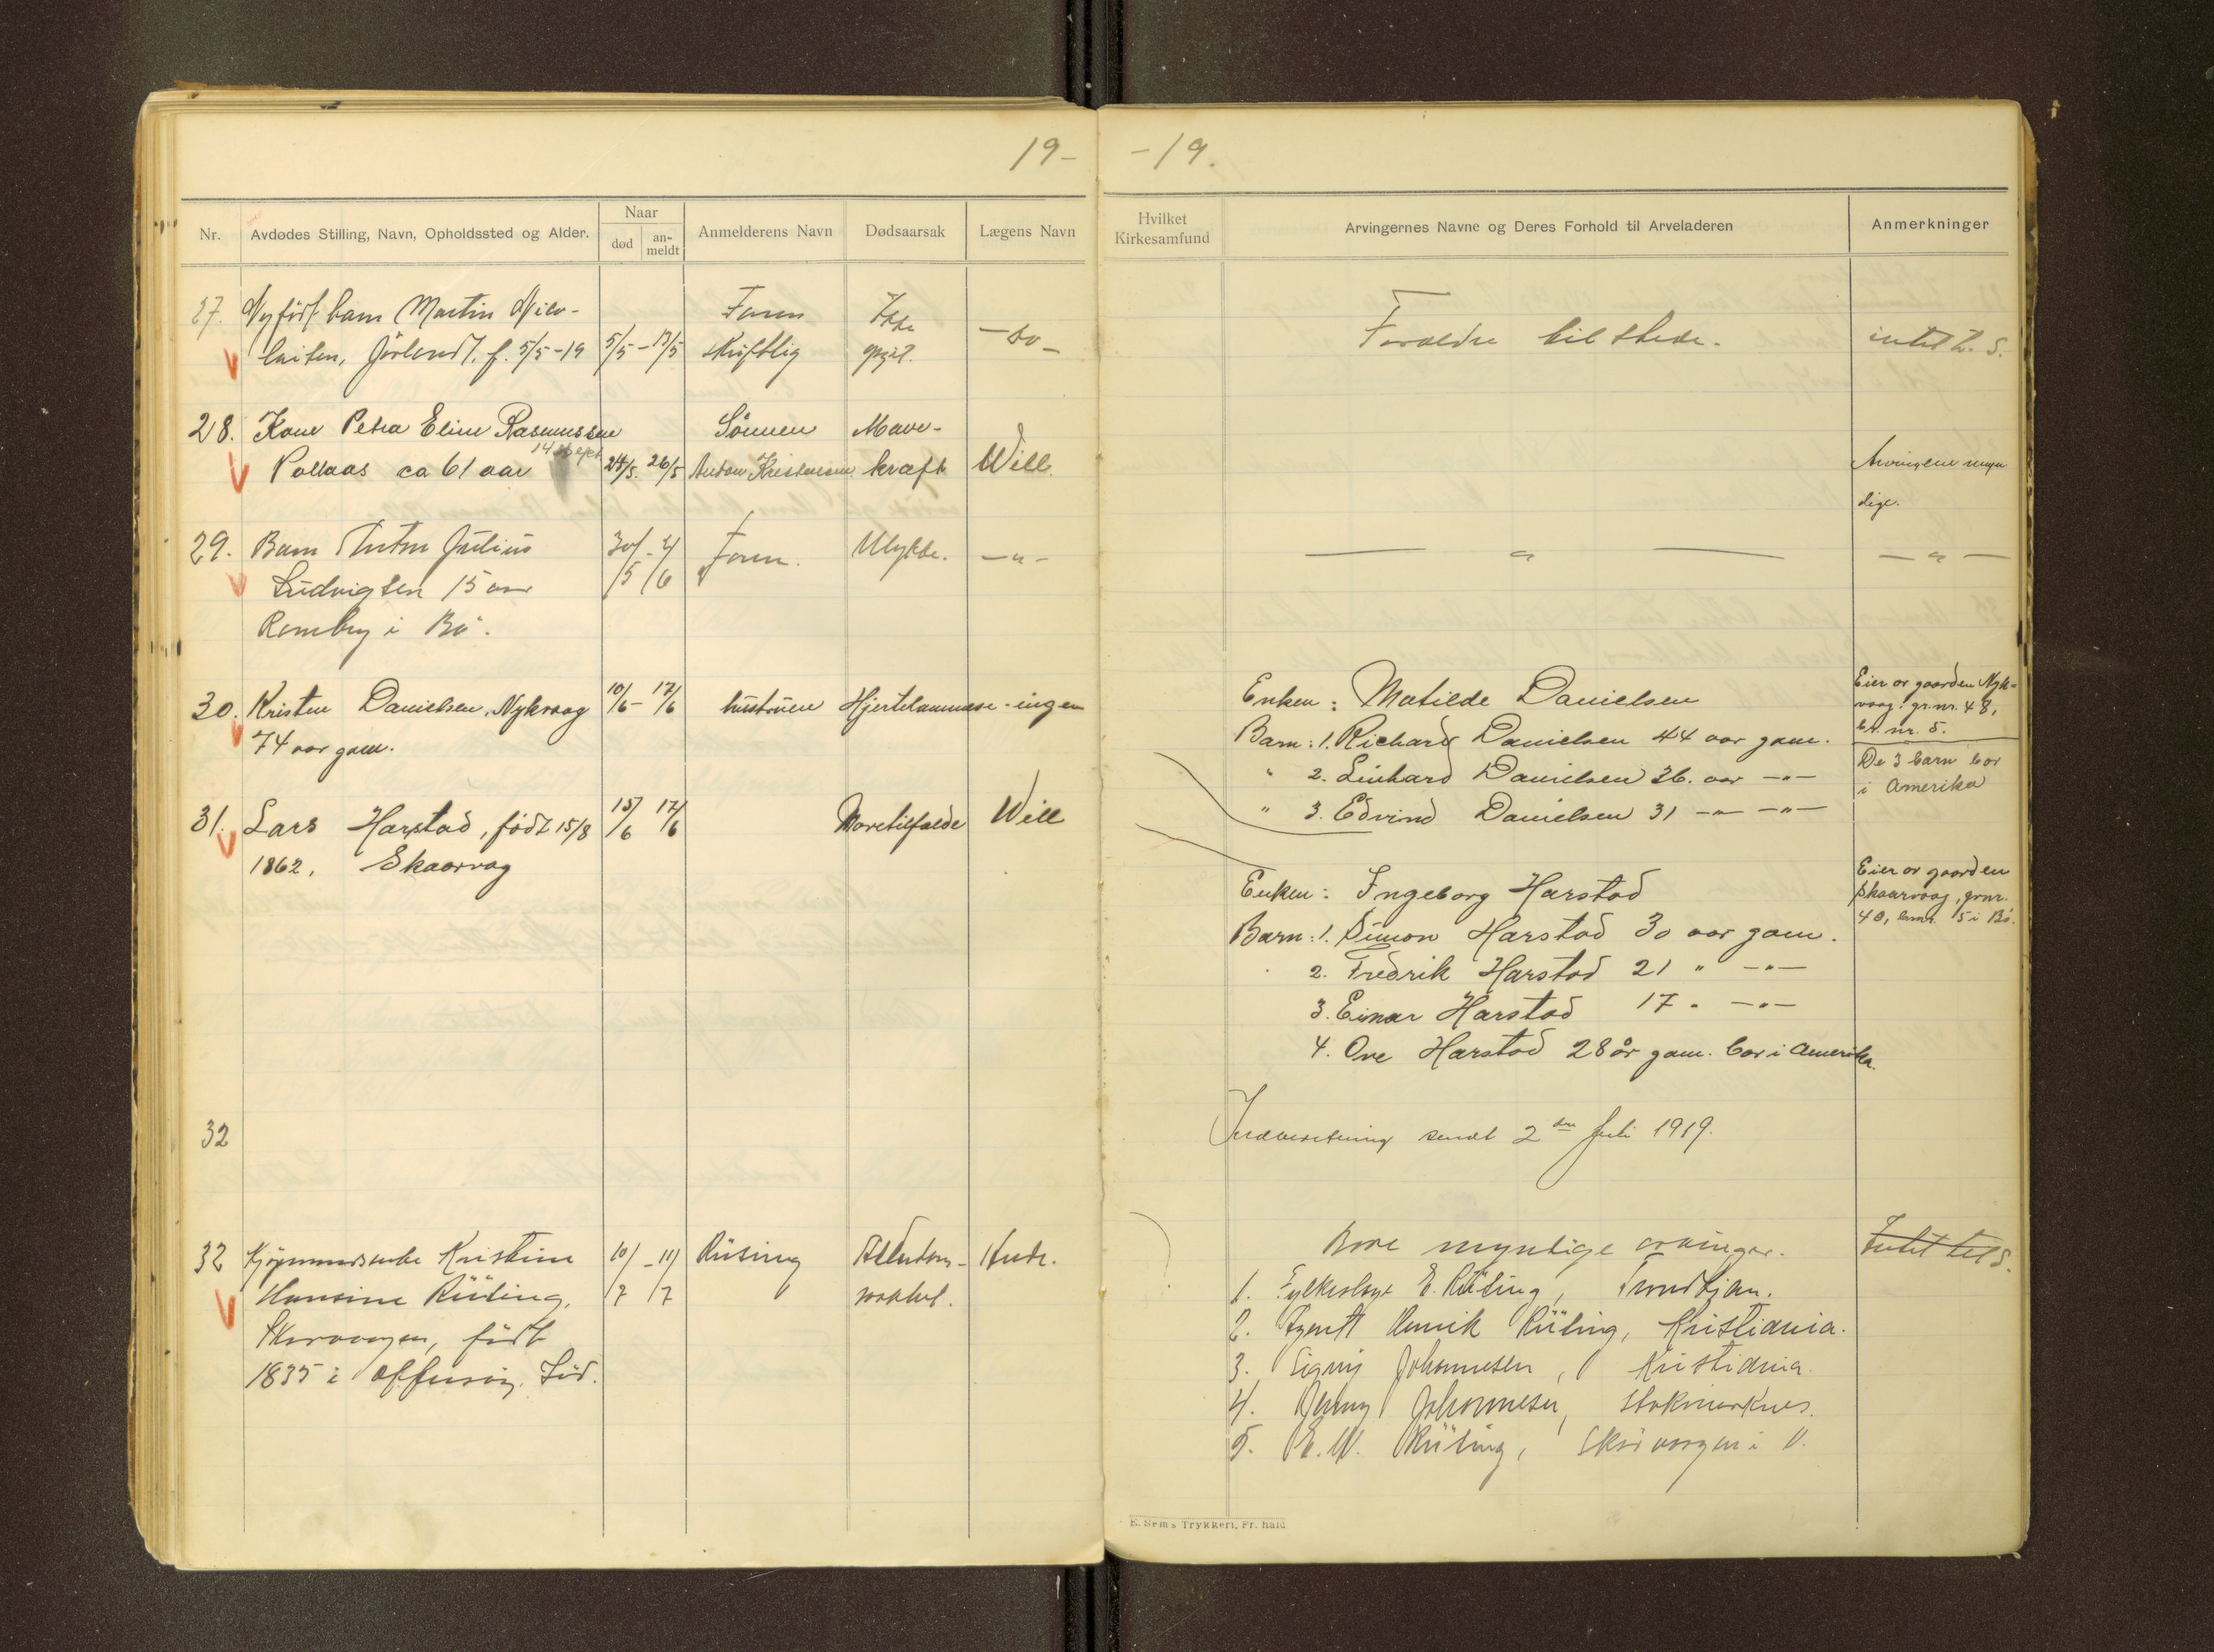 19-
Nr.
Avdødes Stilling, Navn, Opholdssted og Alder.
Naar
død
an-
meldt
Anmelderens Navn
Dødsaarsak
Lægens Navn
27. Nyfødt barn Martin
5/5-19 5/5 - 13/5 skriftlig opgit. -do-
Faren Ikke
28. Kone Petra Eline Rasmussen Sønnen Mave-
Pollaas ca 61 aar 24/5. 26/5 Anton Kristensen kræft Will.
29. Barn Anton Julius 30/5 - 4/6 Faren. Ulykke. -"-
Ludvigsen 15 aar
i Bø.
30. Kristen Danielsen, Nykvaag 10/6 - 17/6 hustruen Hjertelammelse - ingen
74 aar gam.
31. Lars Harstad, født 15/8 15/6 17/6 Mavetilfælde Will
1862, Skaarvag
32
32 Kjøpmandsenke Kristine 10/7 - 11/7 Rüsing Alderdoms- Andr.
Hansine Rüsing,
født
1835 i
-19.
Hvilket
Kirkesamfund
Arvingernes Navne og Deres Forhold til Arveladeren
Anmerkninger
Foraldre tilstede. intet t. S.
Arvingene myn
dige.
— " — — " —
Enken: Matilde Danielsen
Barn: 1. Richard Danielsen 44 aar gam.
" 2. Leinhard Danielsen 36. aar -"-
" 3. Edvind Danielsen 31 -"- -"-
Eier av gaarden Nyk-
vaag. gr.nr. 48,
br. nr. 5.
De 3 barn bor
i Amerika
Enken: Ingeborg Harstad
Barn: 1. Simon Harstad 30 aar gam.
2. Fredrik Harstad 21 " -"-
3. Einar Harstad 17 " -"-
4. Ove Harstad 28 år gam. bor i Amerika.
Eier av gaarden
Skaarvaag, grnr.
40, brnr. 5 i Bø.
Indberetning sendt 2den Juli 1919.
Bare myndige arvinger. Intet til S.
1. E. Rüsing, Trondhjem.
2. Agent Henrik Rüsing, Kristiania.
3. Signy Johannesen, Kristiania.
4. Johannesen, Stokmarknes.
5. E. W. Rüsing, i V.
E. Sems Trykkeri, Fr.hald